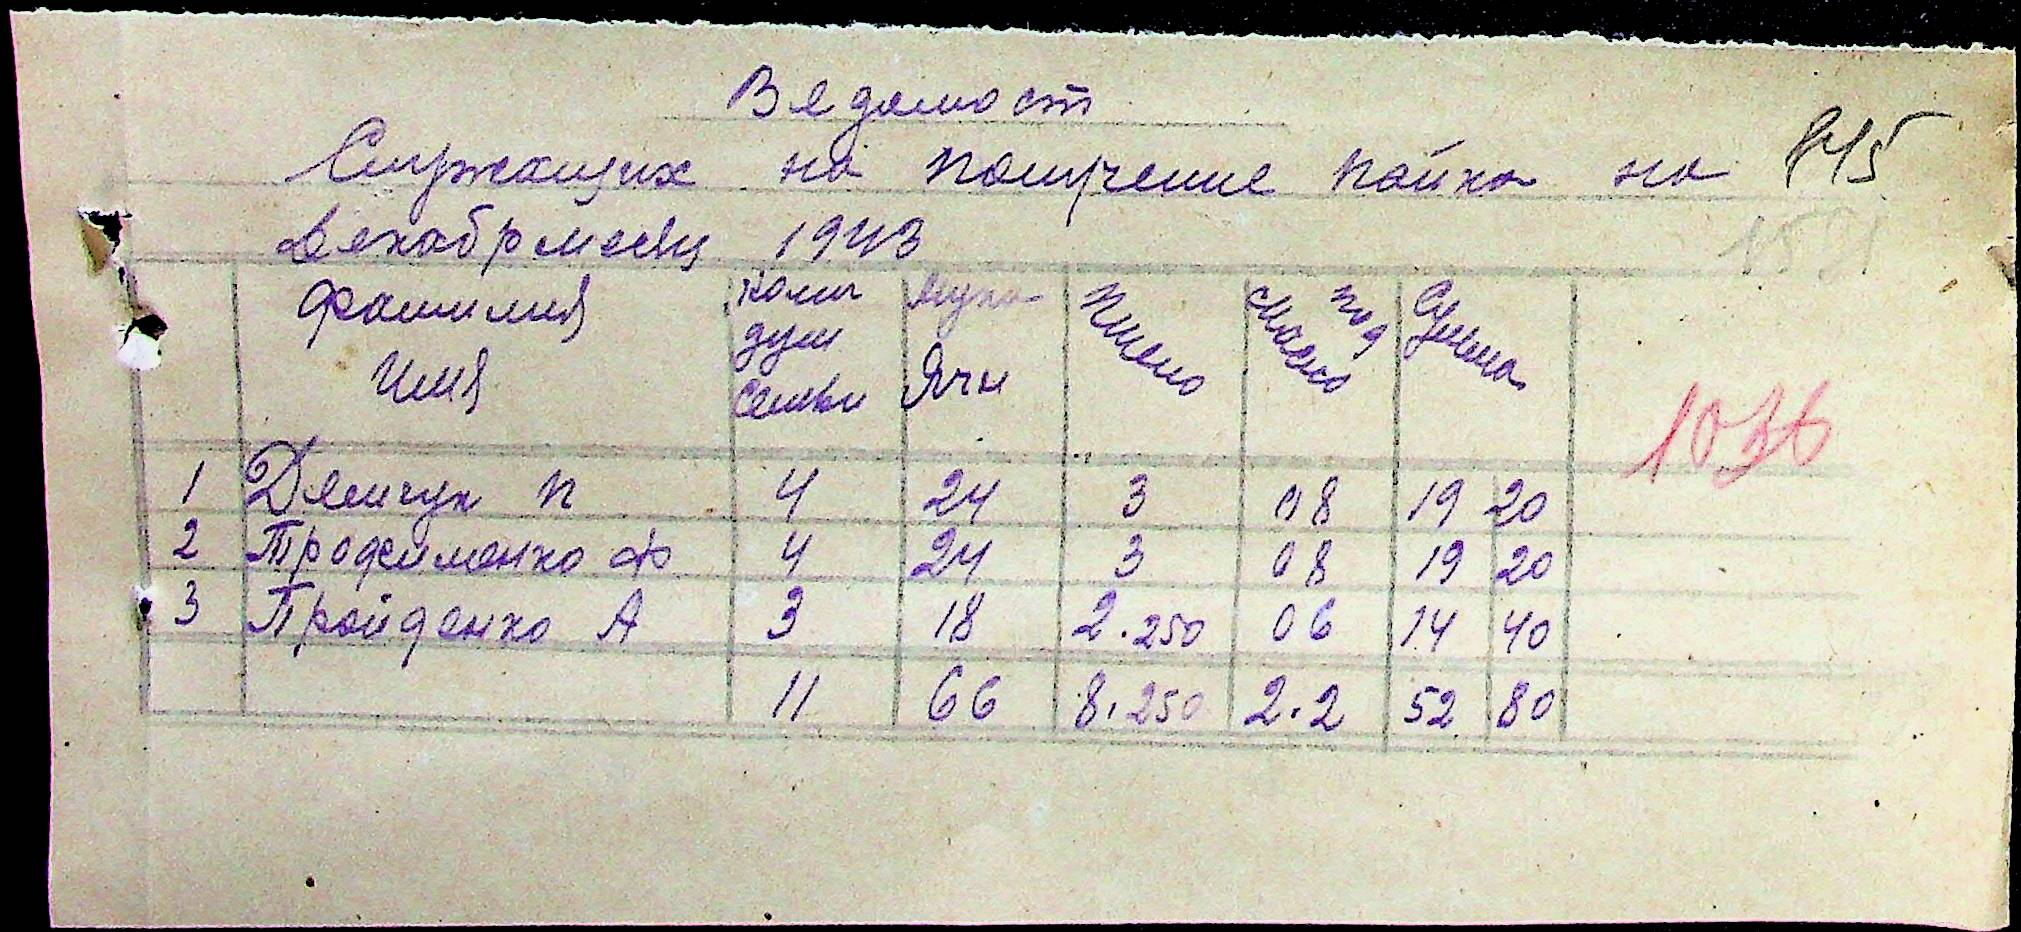 Ведомост
Служащих на получение пайка на
декабрмесяц 1943
845
фамилия Имя | Колич душ семьи | Мука Ячн | Пшено | Под масло | Сумма
1036
1 | Демчук П | 4 | 24 | 3 | 08 | 19 | 20
2 | Трофименко Ф | 4 | 24 | 3 | 08 | 19 | 20
3 | Пройденко А | 3 | 18 | 2.250 | 06 | 14 | 40
11 | 66 | 8.250 | 2.2 | 52 | 80